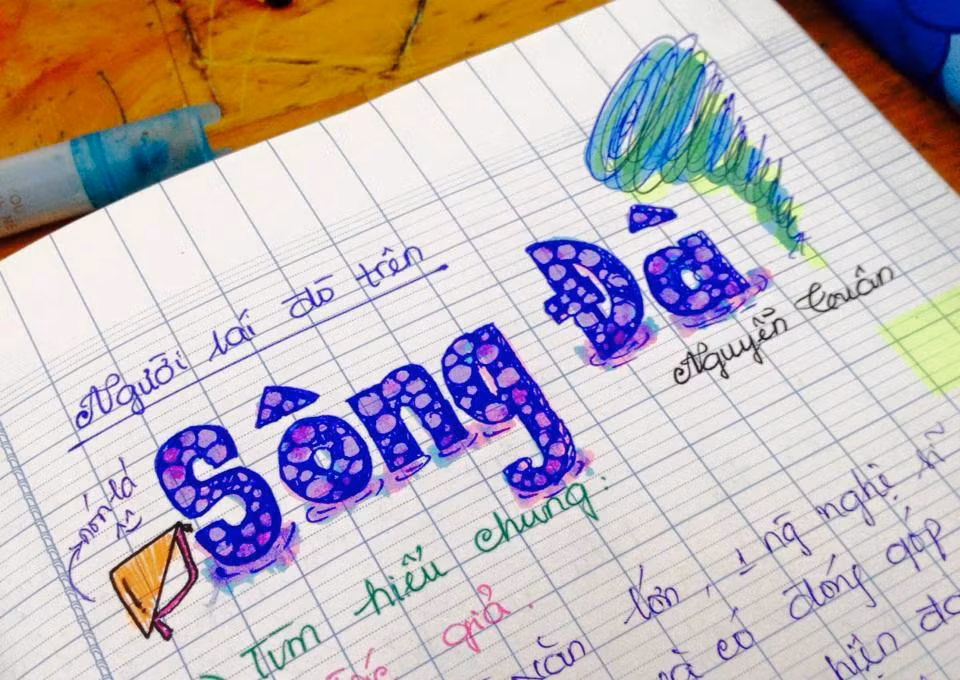 Người lái đò trên
Sông Đà
Nguyễn Tuân
nón lá
Tìm hiểu chung:
Tác giả.
văn lớn, 1 ng̃ nghệ sĩ
và có đóng góp
hiện đ